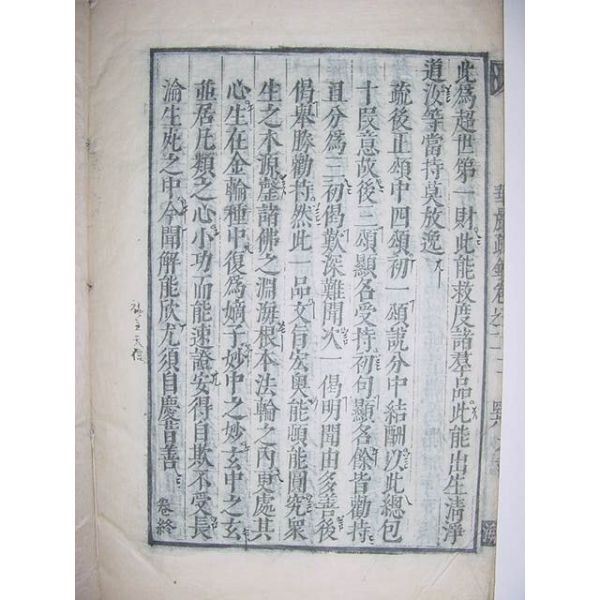 此為超世第一財此能救度諸羣品此能出生清淨
道汝等當持莫放逸
疏後正頌中四頌初一頌說分中結酬以此總包
十段意故後三頌顯各受持初句顯各餘皆勸持
且分為三初偈歎深難聞次一偈明聞由多善後
偈舉勝勸持然此一品文旨宏奧能頓能圓究衆
生之本源罄諸佛之淵海根本法輪之內更處其
心生在金輪種中復為嫡子妙中之妙玄中之玄
並居凡類之心小功而能速證安得自欺不受長
淪生死之中今聞解能欣尤須自慶昔善
卷終
華嚴疏鈔卷之二